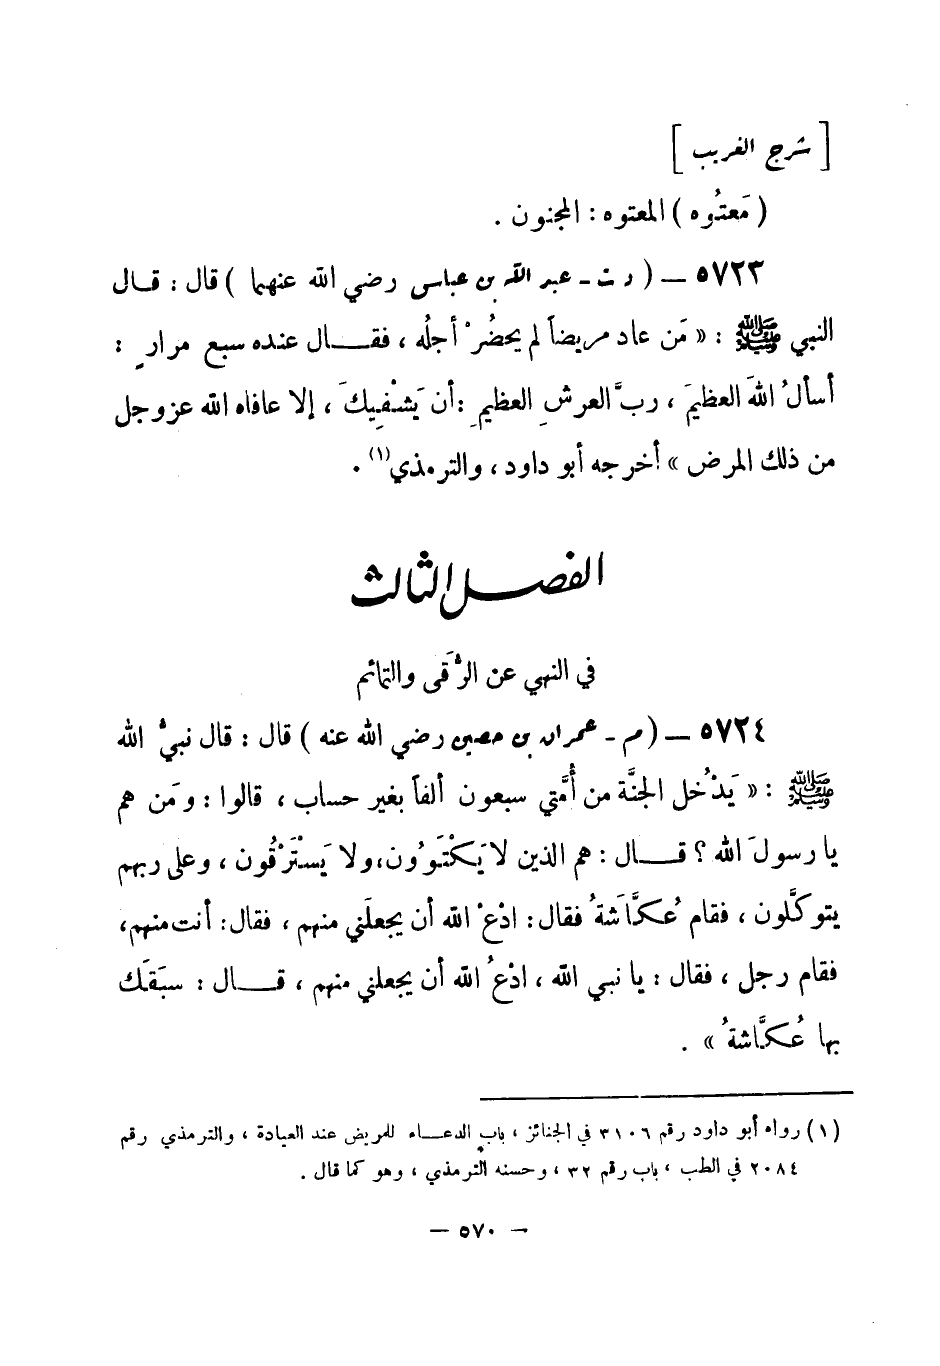 [ شرح الغريب ]
( مَعتُوه ) المعتوه : المجنون .
٥٧٢٣ — ( د ت - عبد الله بن عباس رضي الله عنهما ) قال : قال
النبي ﷺ : « مَن عاد مريضاً لم يحضُرْ أجلُه ، فقال عنده سبع مرارٍ :
أسألُ اللهَ العظيمَ ، ربَّ العرشِ العظيمِ : أن يَشْفِيكَ ، إلا عافاه الله عز وجل
من ذلك المرض » أخرجه أبو داود ، والترمذي(١) .
الفصل الثالث
في النهي عن الرُّقَى والتمائم
٥٧٢٤ — ( م - عمران بن حصين رضي الله عنه ) قال : قال نبيُّ الله
ﷺ : « يَدْخُل الجنَّة من أُمَّتي سبعون ألفاً بغير حساب ، قالوا : ومَن هم
يا رسولَ الله ؟ قال : هم الذين لا يَكْتَوُون، ولا يَسْتَرْقُون ، وعلى ربهم
يتوكَّلون ، فقام عُكَّاشَةُ فقال : ادْعُ الله أن يجعلَني منهم ، فقال : أنت منهم،
فقام رجل ، فقال : يا نبي الله ، ادْعُ الله أن يجعلني منهم ، قال : سبَقَك
بها عُكَّاشةُ » .
(١) رواه أبو داود رقم ٣١٠٦ في الجنائز ، باب الدعاء للمريض عند العيادة ، والترمذي رقم
٢٠٨٤ في الطب ، باب رقم ٣٢ ، وحسنه الترمذي ، وهو كما قال .
— ٥٧٠ —